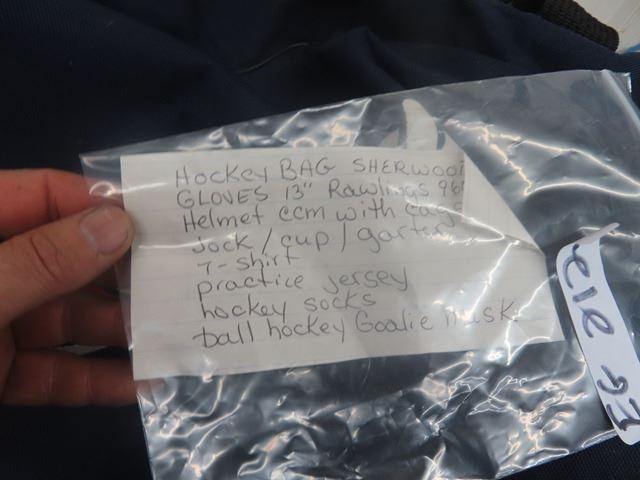 Hockey BAG SHERWOOD
GLOVES 13" Rawlings
Helmet ccm with cage
Jock / cup / garter
T-shirt
practice jersey
hockey socks
ball hockey Goalie Mask